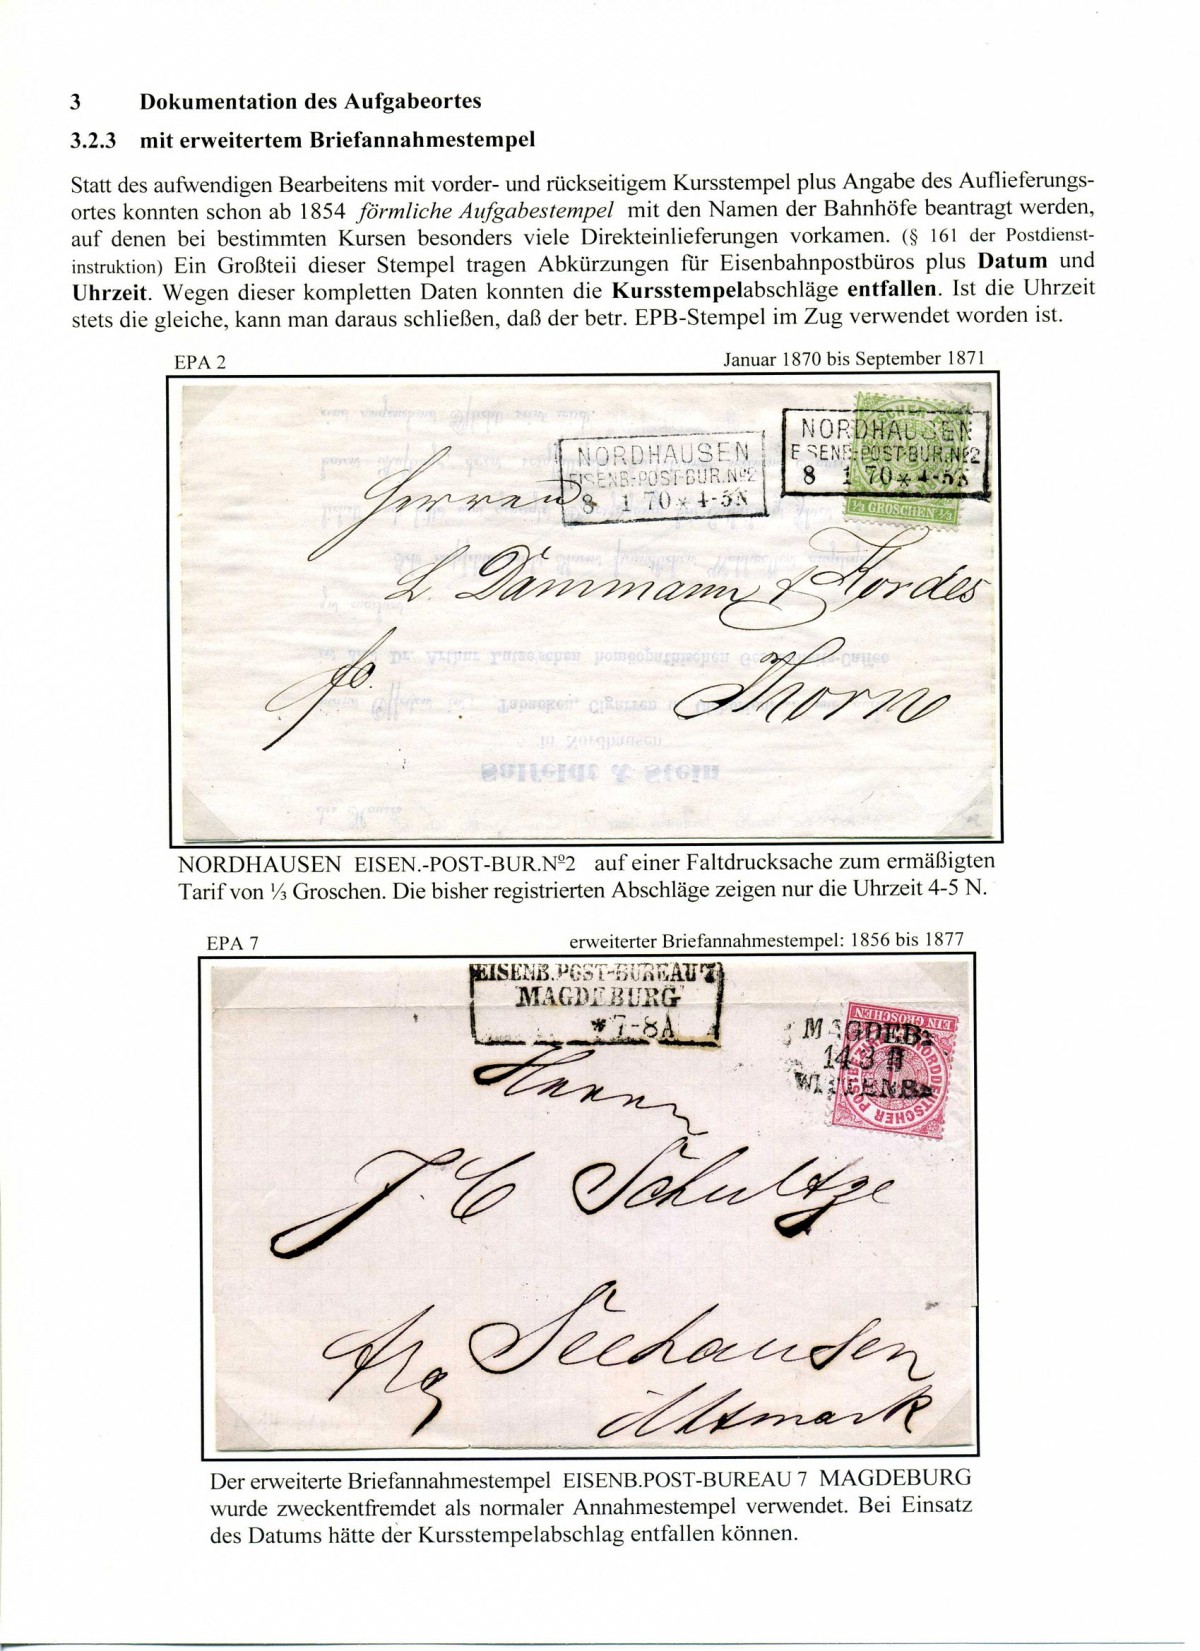 3 Dokumentation des Aufgabeortes
3.2.3 mit erweitertem Briefannahmestempel
Statt des aufwendigen Bearbeitens mit vorder- und rückseitigem Kursstempel plus Angabe des Auflieferungs-
ortes konnten schon ab 1854 förmliche Aufgabestempel mit den Namen der Bahnhöfe beantragt werden,
auf denen bei bestimmten Kursen besonders viele Direkteinlieferungen vorkamen. (§ 161 der Postdienst-
instruktion) Ein Großteii dieser Stempel tragen Abkürzungen für Eisenbahnpostbüros plus Datum und
Uhrzeit. Wegen dieser kompletten Daten konnten die Kursstempelabschläge entfallen. Ist die Uhrzeit
stets die gleiche, kann man daraus schließen, daß der betr. EPB-Stempel im Zug verwendet worden ist.
EPA 2 Januar 1870 bis September 1871
NORDHAUSEN
EISENB.-POST-BUR.No2
8 1 70 * 4-5N
NORDHAUSEN
EISENB.-POST-BUR.No2
8 1 70 * 4-5N
1/3 GROSCHEN 1/3
Herren
L. Dammann & Kordes
fo.
Thorn
Dr. Arthur Lutze'schen homöopathischen
Tabacken, Cigarren
in Nordhausen
Salfeldt & Stein
NORDHAUSEN EISEN.-POST-BUR.Nº2 auf einer Faltdrucksache zum ermäßigten
Tarif von ⅓ Groschen. Die bisher registrierten Abschläge zeigen nur die Uhrzeit 4-5 N.
EPA 7 erweiterter Briefannahmestempel: 1856 bis 1877
EISENB.POST-BUREAU 7
MAGDEBURG
* 7-8A
MAGDEB:
14 3 II
WITTENB.
EIN GROSCHEN
NORDDEUTSCHER POSTBEZIRK
Herrn
J C Schultze
frq
Seehausen
Altmark
Der erweiterte Briefannahmestempel EISENB.POST-BUREAU 7 MAGDEBURG
wurde zweckentfremdet als normaler Annahmestempel verwendet. Bei Einsatz
des Datums hätte der Kursstempelabschlag entfallen können.